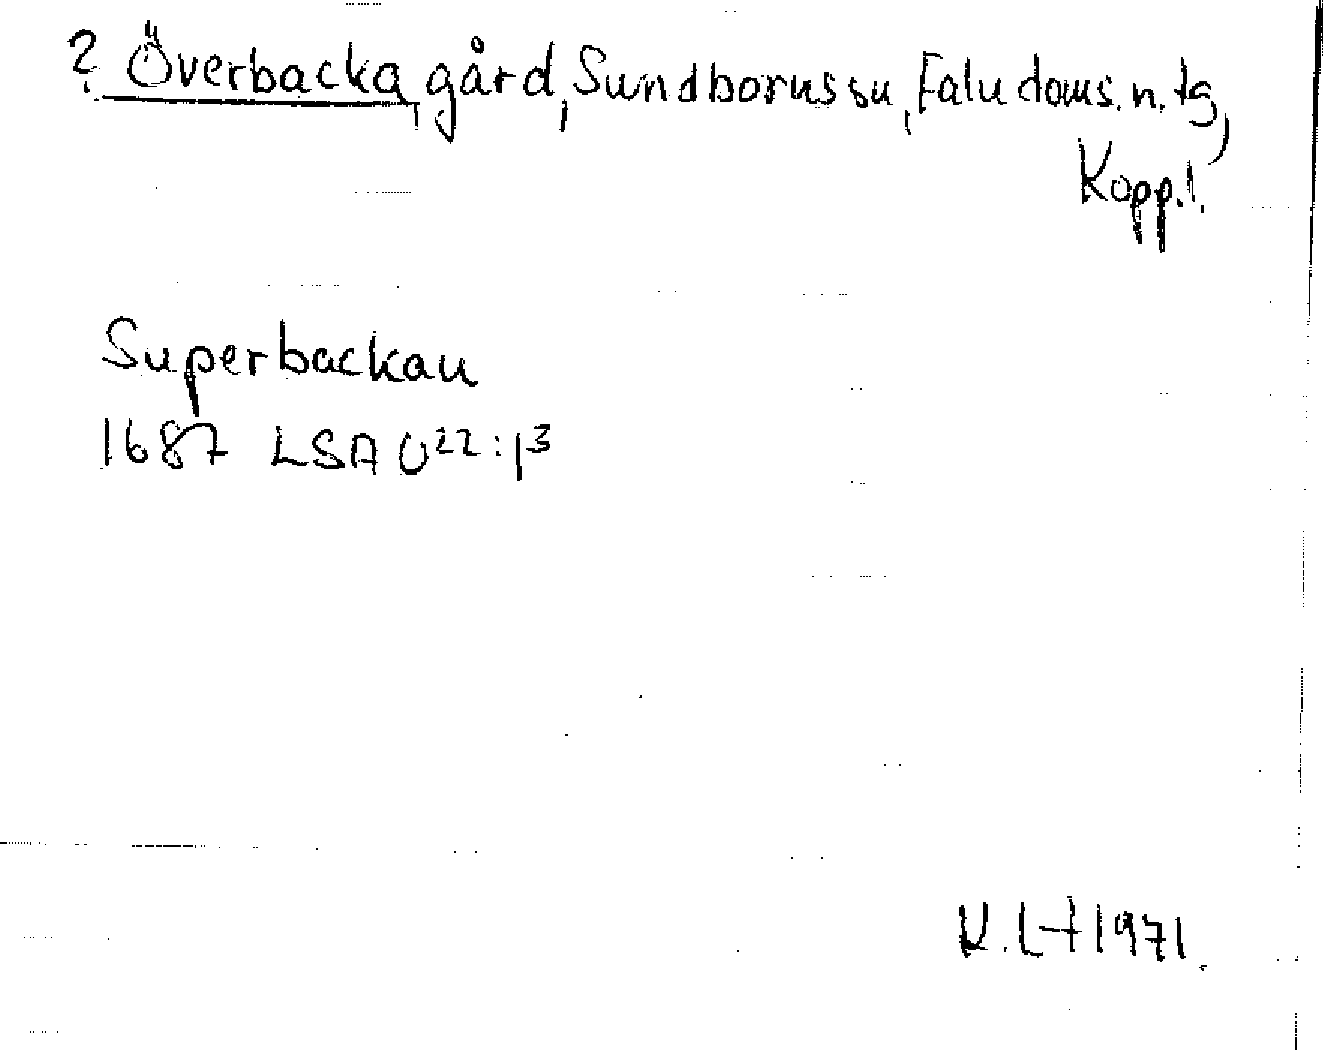 ? Överbacka, gård, Sundborns sn, Falu doms. n. tg,
Kopp. l.
Superbackan
1687 LSA U²²:1³
K. Lt 1971.